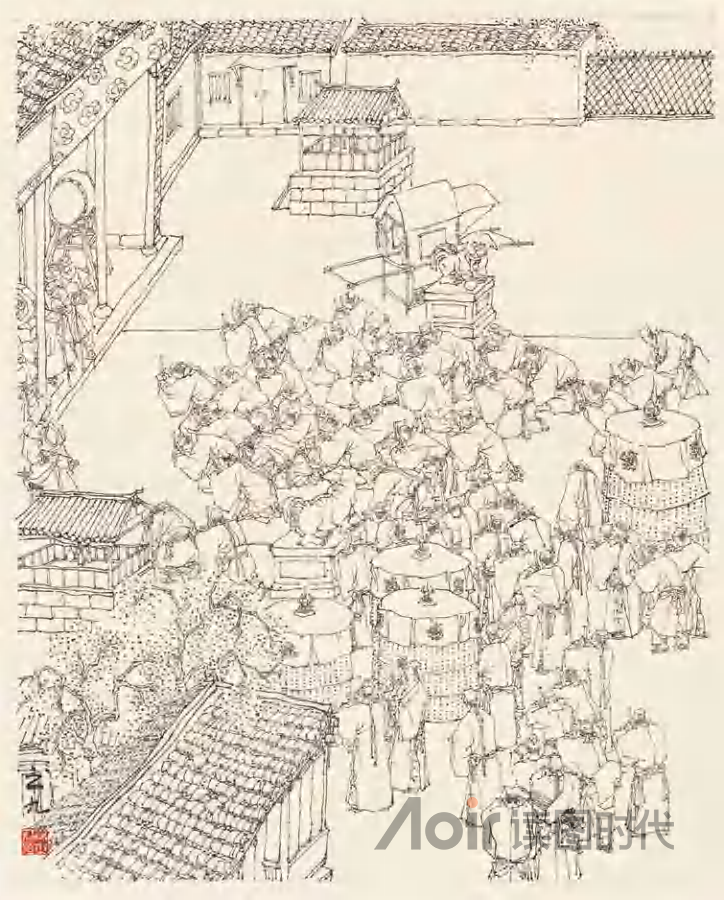 之九
Aoir 读图时代